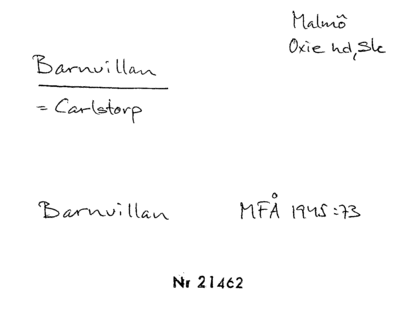 Malmö
Oxie hd, Sk
Barnvillan
= Carlstorp
Barnvillan MFÅ 1945:73
Nr 21462